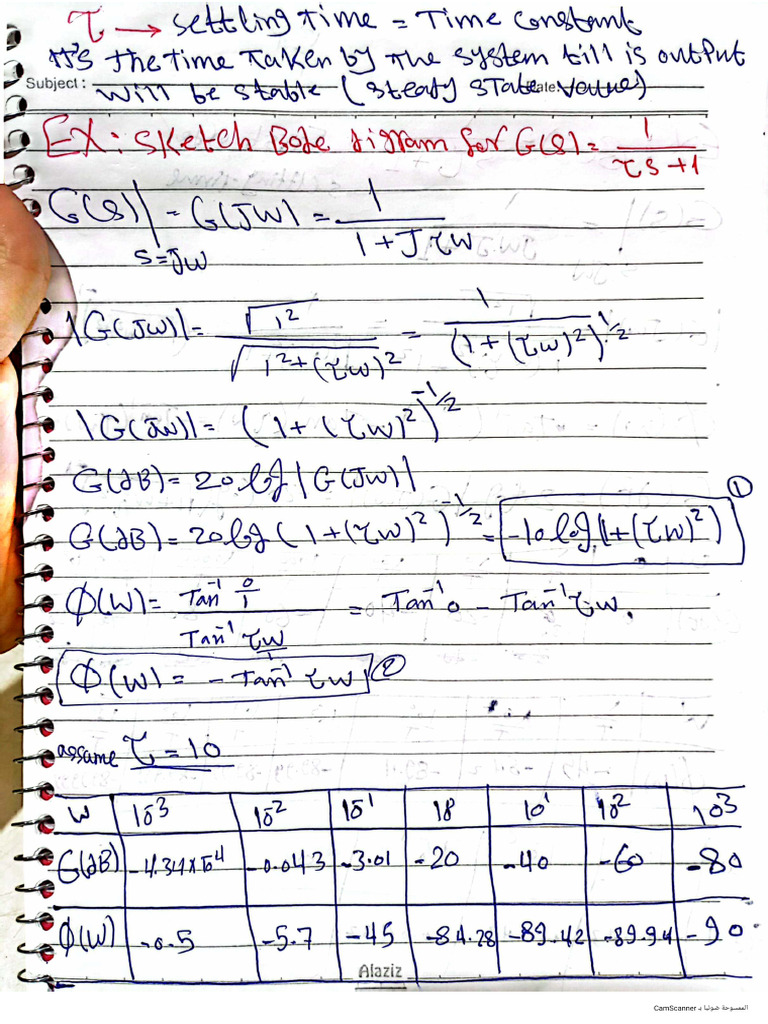 τ → settling time = Time constant
It's the time taken by the system till is output
Subject : will be stable (steady state value) Date:
EX: Sketch Bode digram for G(s) = 1 / τs+1
G(s)|s=jw = G(jw) = 1 / 1+jτw
|G(jw)| = √1² / √1²+(τw)² = 1 / (1+(τw)²)^1/2
|G(jw)| = (1+(τw)²)^-1/2
G(dB) = 20 log |G(jw)|
G(dB) = 20 log (1+(τw)²)^-1/2 = -10 log(1+(τw)²) ①
Φ(w) = Tan⁻¹ 0/1 / Tan⁻¹ τw/1 = Tan⁻¹ 0 - Tan⁻¹ τw.
Φ(w) = -Tan⁻¹ τw ②
assame τ = 10
w 10⁻³ 10⁻² 10⁻¹ 10⁰ 10¹ 10² 10³
G(dB) -4.34x10⁻⁴ -0.043 -3.01 -20 -40 -60 -80
Φ(w) -0.5 -5.7 -45 -84.28 -89.42 -89.94 -90
Alaziz
الممسوحة ضوئيا بـ CamScanner